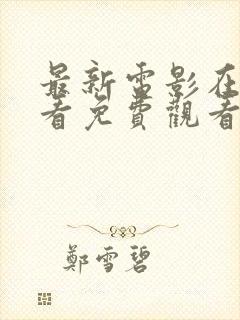 最新雷影在
看免費觀看
鄭雪碧